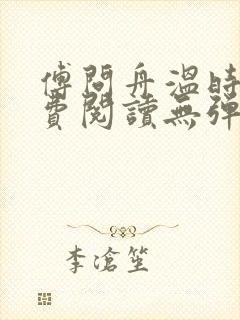 傅問舟溫時
費閱讀無彈
李滄笙